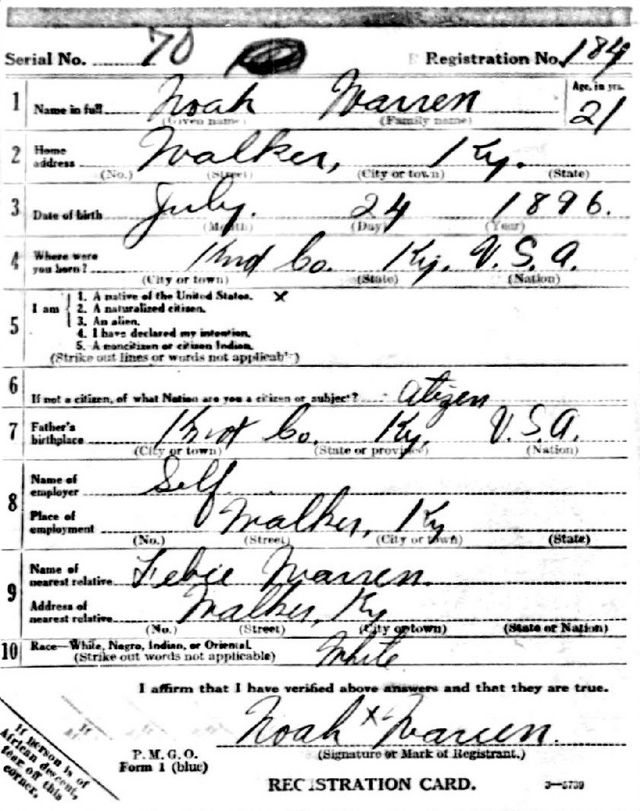 Serial No. 70 Registration No. 184
1 Name in full Noah Warren Age, in yrs.
(Given name) (Family name) 21
2 Home address Walker, Ky.
(No.) (Street) (City or town) (State)
3 Date of birth July. 24 1896.
(Month) (Day) (Year)
4 Where were you born? Knox Co. Ky. U.S.A.
(City or town) (State) (Nation)
5 I am
1. A native of the United States. x
2. A naturalized citizen.
3. An alien.
4. I have declared my intention.
5. A noncitizen or citizen Indian.
(Strike out lines or words not applicable)
6 If not a citizen, of what Nation are you a citizen or subject? Citizen
7 Father's birthplace Knox Co. Ky. U.S.A.
(City or town) (State or province) (Nation)
8 Name of employer Self
Place of employment Walker, Ky
(No.) (Street) (City or town) (State)
9 Name of nearest relative Warren.
Address of nearest relative Walker, Ky
(No.) (Street) (City or town) (State or Nation)
10 Race—White, Negro, Indian, or Oriental.
(Strike out words not applicable) White
I affirm that I have verified above answers and that they are true.
Noah x Warren.
(Signature or Mark of Registrant.)
P. M. G. O.
Form 1 (blue)
REGISTRATION CARD. 3—5739
If person is of
African descent,
tear off this
corner.